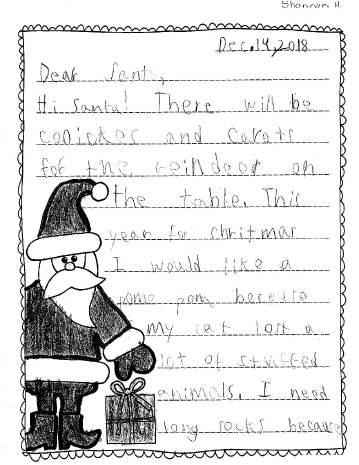 Shannon H.
Dec. 14, 2018
Dear Santa,
Hi Santa! There will be
cooickes and carats
for the reindeer on
the table. This
year for chritmas
I would like a
pome pom becaus
my cat lost a
lot of stuffed
animals. I need
long socks because